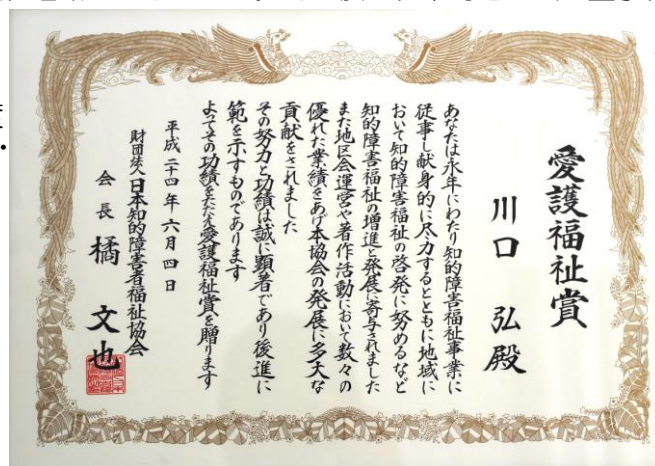 愛護福祉賞
川口 弘殿
あなたは永年にわたり知的障害福祉事業に
従事し献身的に尽力するとともに地域に
おいて知的障害福祉の啓発に努めるなど
知的障害福祉の増進と発展に寄与されました
また地区会運営や著作活動において数々の
優れた業績をあげ本協会の発展に多大な
貢献をされました
その努力と功績は誠に顕著であり後進に
範を示すものであります
よってその功績をたたえ愛護福祉賞を贈ります
平成二十四年六月四日
財団法人日本知的障害者福祉協会
会長 橘 文也